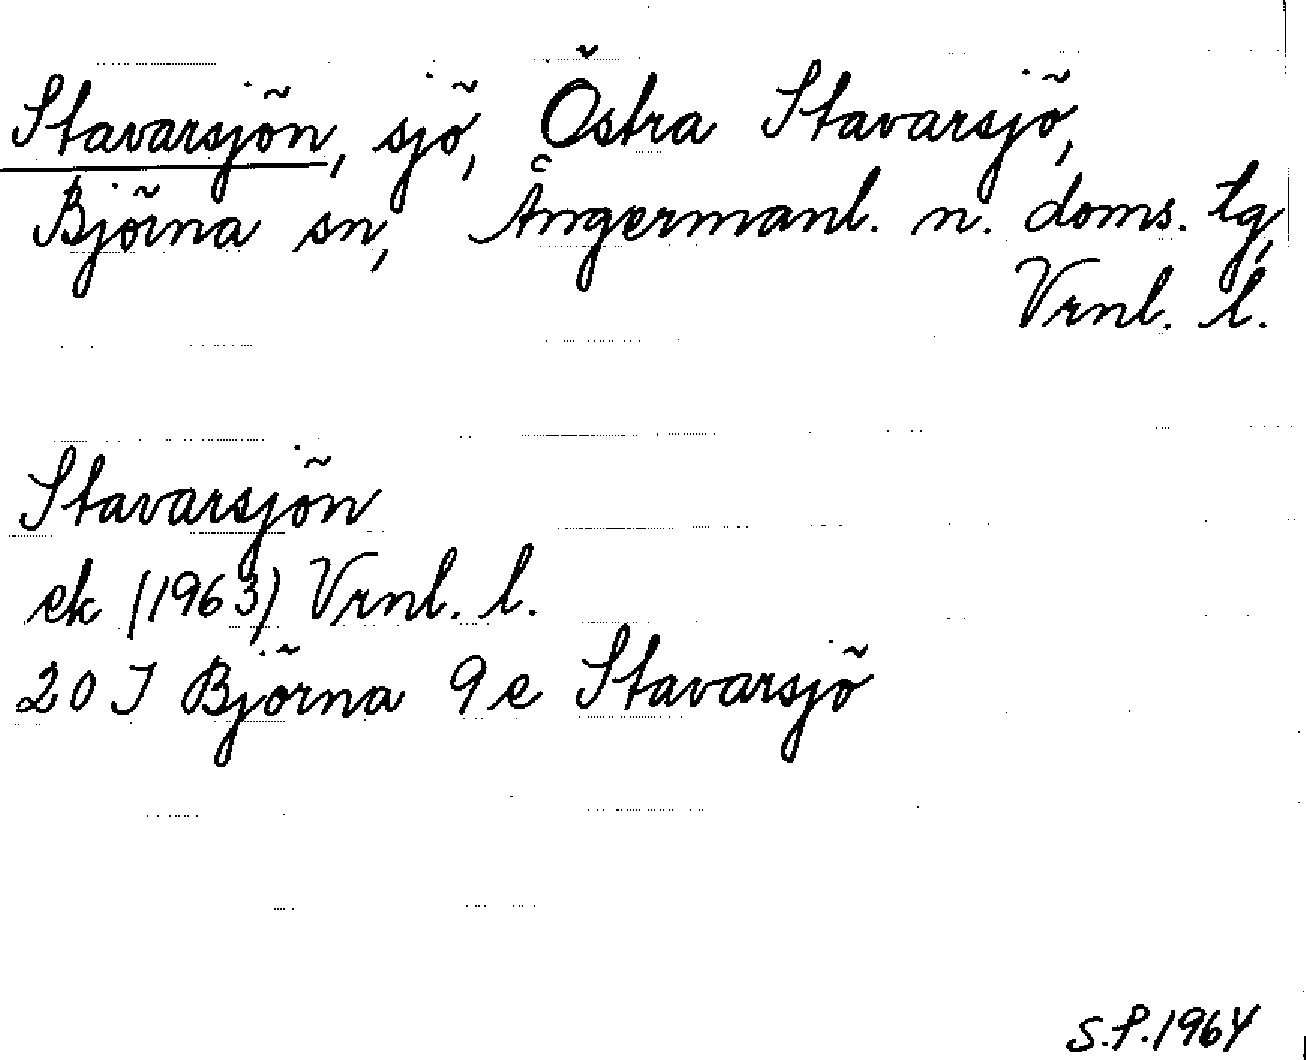 Stavarsjön, sjö, Östra Stavarsjö,
Björna sn, Ångermanl. n. doms. tg,
Vrnl. l.
Stavarsjön
ek (1963) Vrnl. l.
20 J Björna 9 e Stavarsjö
S.P. 1964